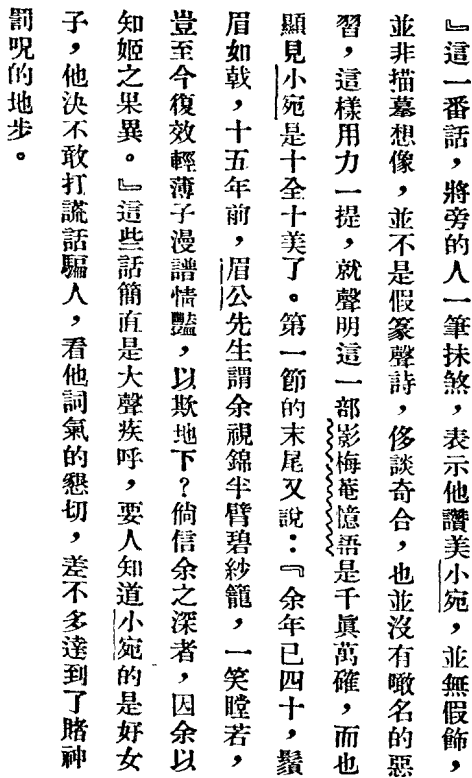 』這一番話，將旁的人一筆抹煞，表示他讚美小宛，並無假飾，
並非描摹想像，並不是假篆聲詩，侈談奇合，也並沒有噉名的惡
習，這樣用力一提，就聲明這一部影梅菴憶語是千眞萬確，而也
顯見小宛是十全十美了。第一節的末尾又說：『余年已四十，鬚
眉如戟，十五年前，眉公先生謂余視錦半臂碧紗籠，一笑瞠若，
豈至今復效輕薄子漫譜情豔，以欺地下？倘信余之深者，因余以
知姬之果異。』這些話簡直是大聲疾呼，要人知道小宛的是好女
子，他決不敢打謊話騙人，看他詞氣的懇切，差不多達到了賭神
罰呪的地步。